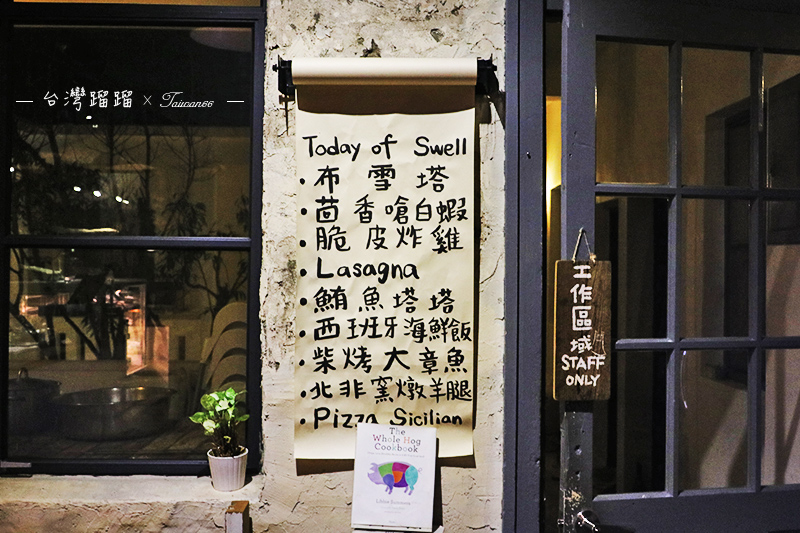 — 台灣蹓蹓 × Taiwan66 —
Today of Swell
• 布雪塔
• 茴香嗆白蝦
• 脆皮炸雞
• Lasagna
• 鮪魚塔塔
• 西班牙海鮮飯
• 柴烤大章魚
• 北非窯燉羊腿
• Pizza Sicilian
The
Whole Hog
Cookbook
工作區域
STAFF
ONLY